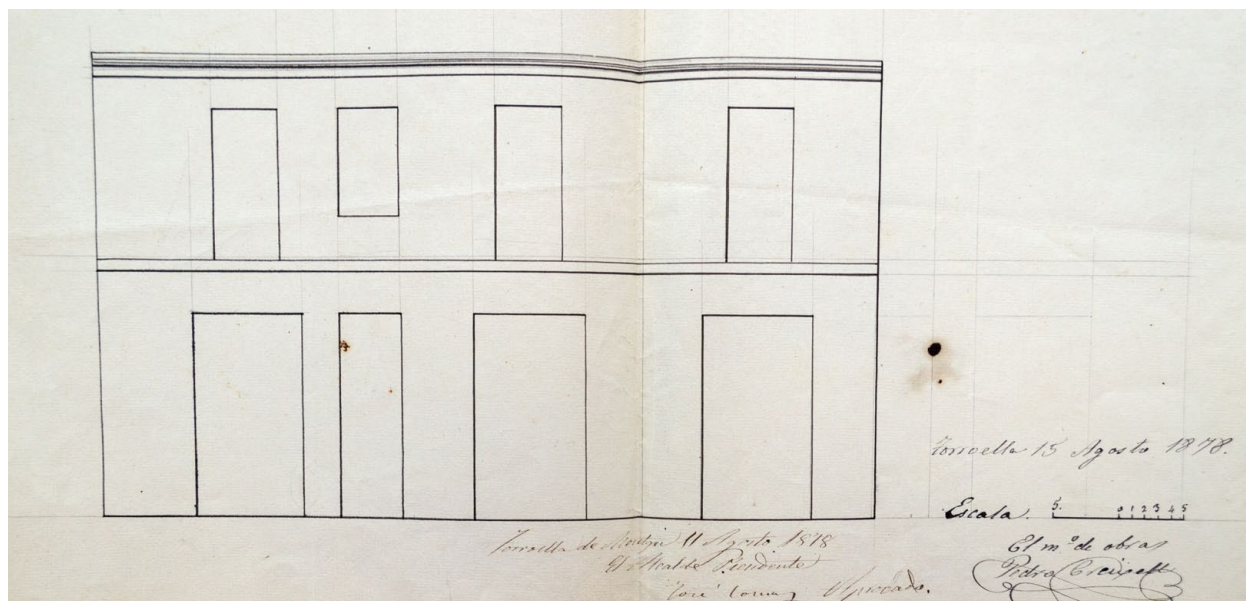 Torroella 15 Agosto 1878.
Escala. 5. 0 1 2 3 4 5
El m.º de obras
Pedro
Torroella de Montgri 11 Agosto 1878
El Alcalde Presidente
José Comas Aprobado.